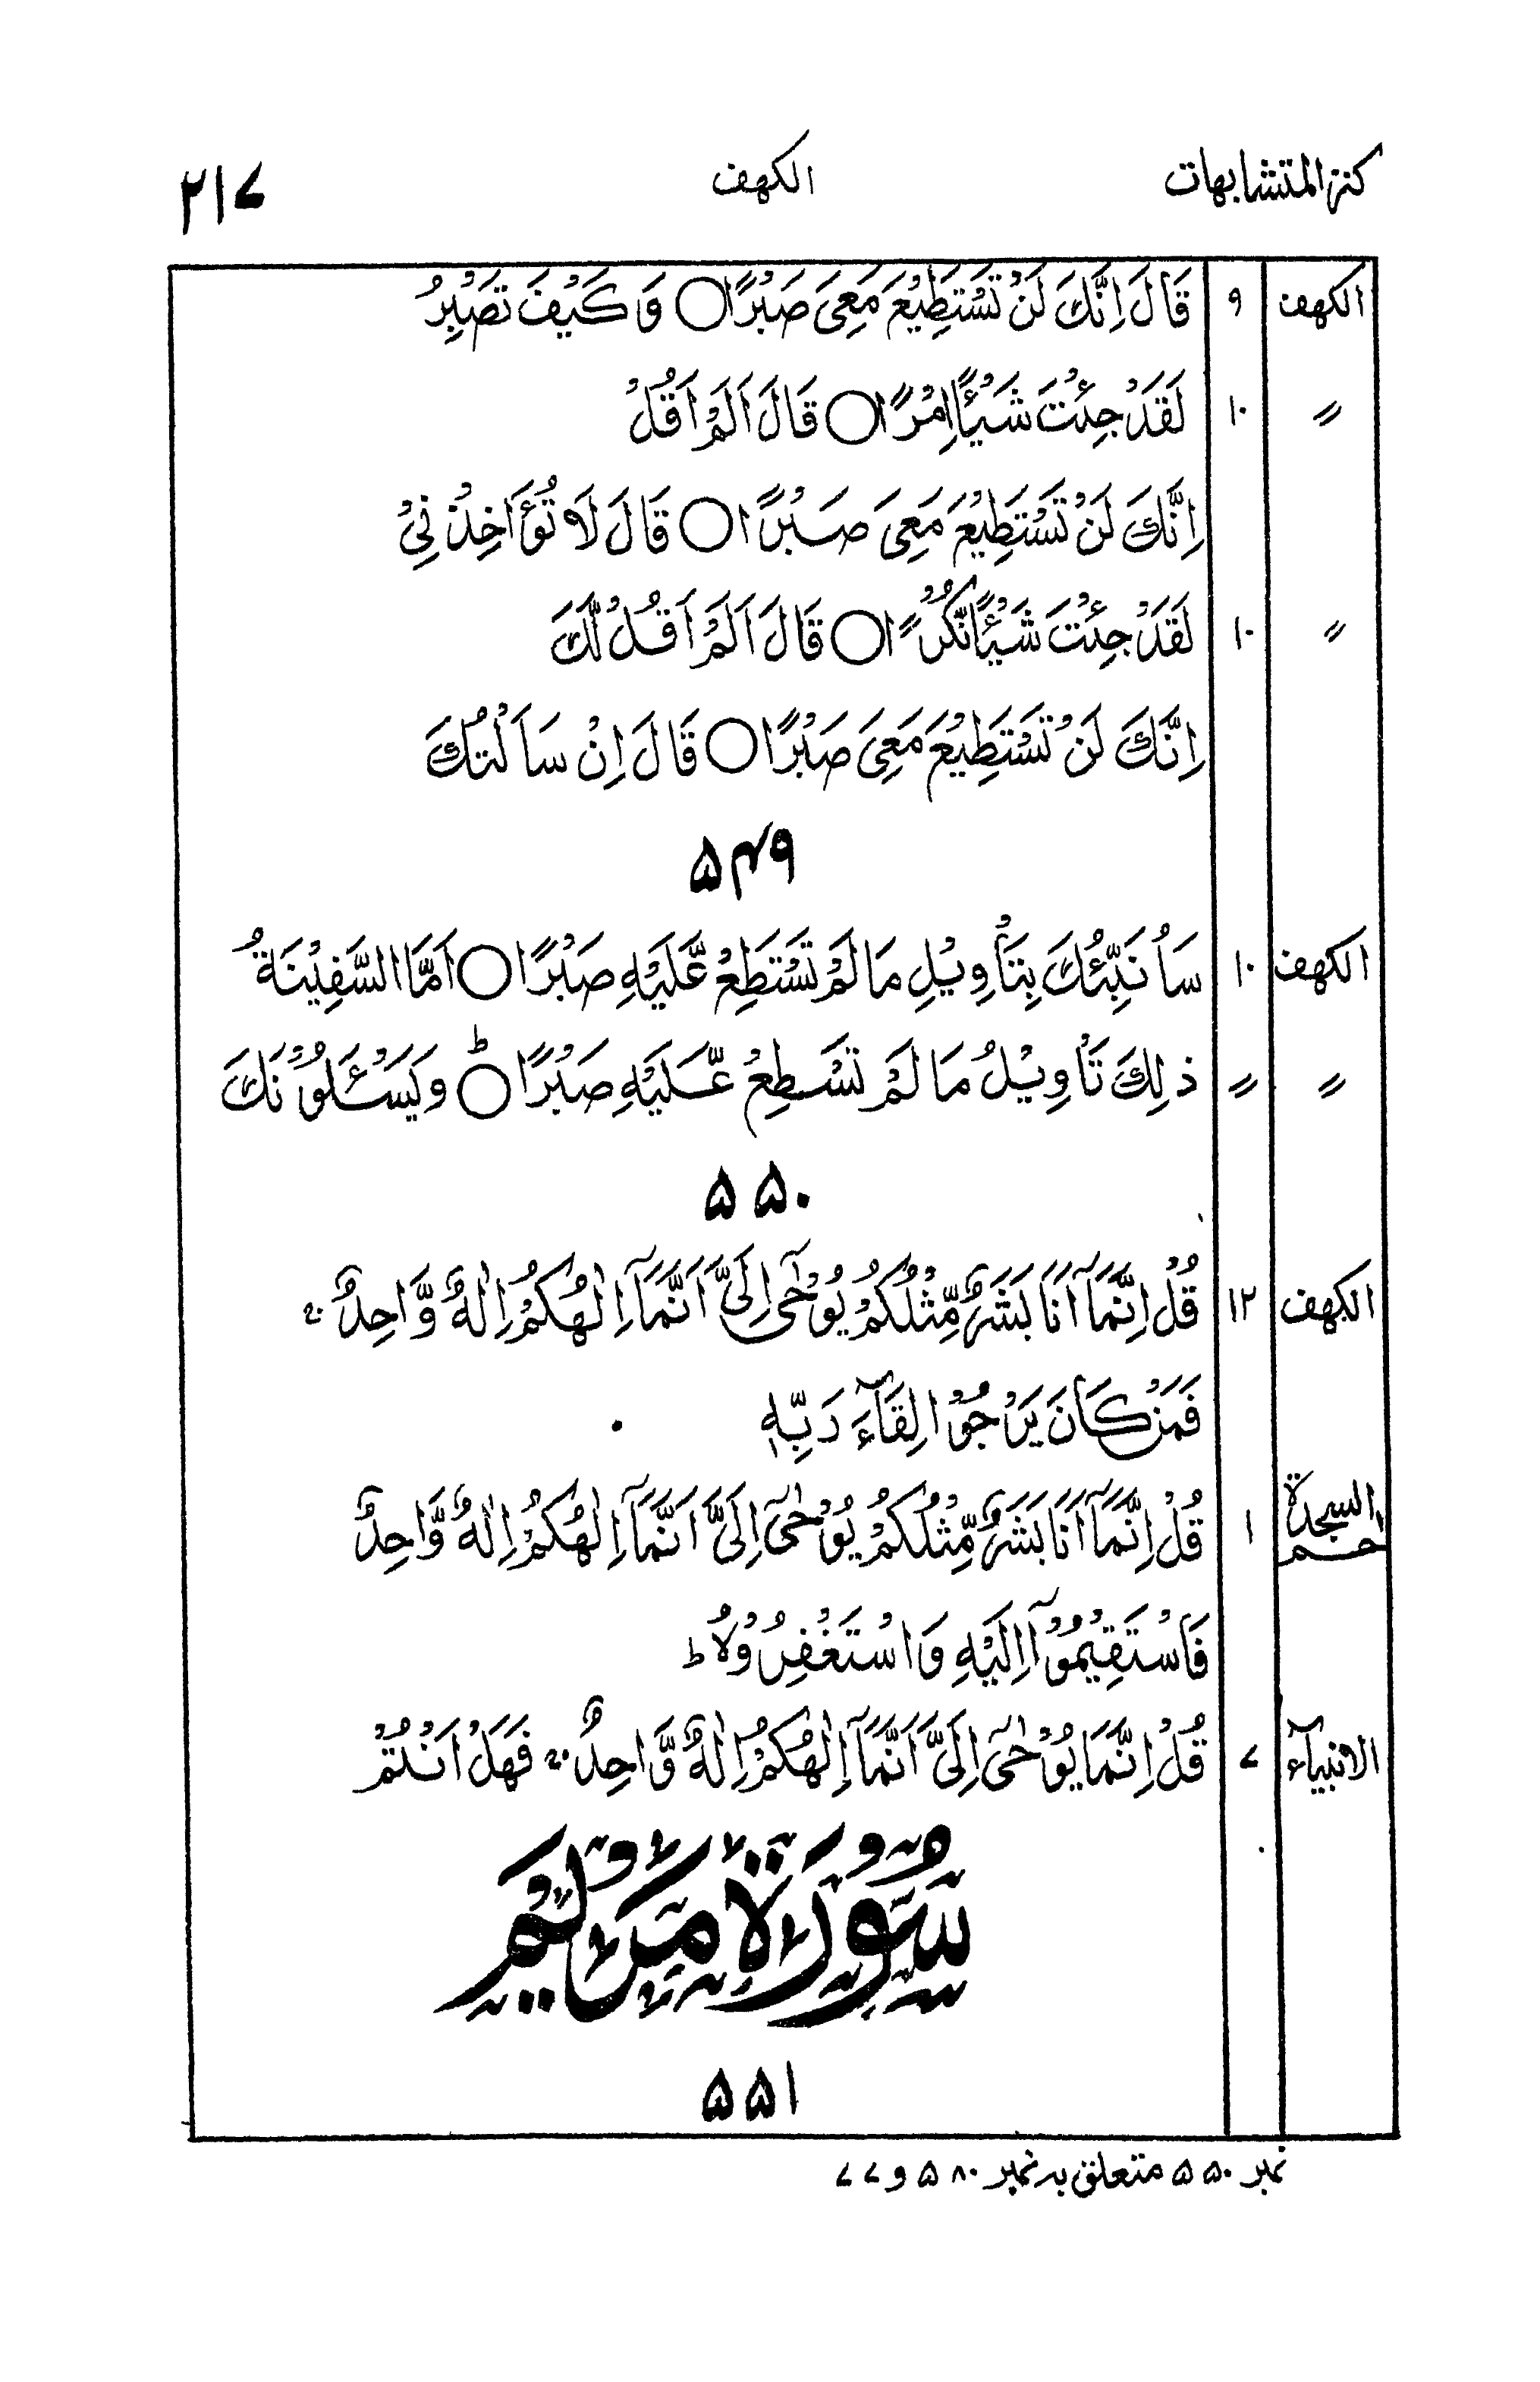 كنز المتشابهات الكهف ۲۱۷
الكهف ۹ قَالَ اِنَّكَ لَنْ تَسْتَطِيْعَ مَعِىَ صَبْرًا○ وَكَيْفَ تَصْبِرُ
〃 ۱۰ لَقَدْ جِئْتَ شَيْـًٔا اِمْرًا○ قَالَ اَلَمْ اَقُلْ
اِنَّكَ لَنْ تَسْتَطِيْعَ مَعِىَ صَبْرًا○ قَالَ لَا تُؤَاخِذْنِىْ
〃 ۱۰ لَقَدْ جِئْتَ شَيْـًٔا نُّكْرًا○ قَالَ اَلَمْ اَقُلْ لَّكَ
اِنَّكَ لَنْ تَسْتَطِيْعَ مَعِىَ صَبْرًا○ قَالَ اِنْ سَاَلْتُكَ
۵۴۹
الكهف ۱۰ سَاُنَبِّئُكَ بِتَاْوِيْلِ مَا لَمْ تَسْتَطِعْ عَّلَيْهِ صَبْرًا○ اَمَّا السَّفِيْنَةُ
〃 〃 ذٰلِكَ تَاْوِيْلُ مَا لَمْ تَسْطِعْ عَّلَيْهِ صَبْرًا○ؕ وَيَسْـَٔلُوْنَكَ
۵۵۰
الكهف ۱۲ قُلْ اِنَّمَآ اَنَا بَشَرٌ مِّثْلُكُمْ يُوْحٰٓى اِلَىَّ اَنَّمَآ اِلٰهُكُمْ اِلٰهٌ وَّاحِدٌ ۚ
فَمَنْ كَانَ يَرْجُوْا لِقَآءَ رَبِّهٖ
السجدة حٰم ۱ قُلْ اِنَّمَآ اَنَا بَشَرٌ مِّثْلُكُمْ يُوْحٰٓى اِلَىَّ اَنَّمَآ اِلٰهُكُمْ اِلٰهٌ وَّاحِدٌ
فَاسْتَقِيْمُوْٓا اِلَيْهِ وَاسْتَغْفِرُوْهُ ؕ
الانبيآء ۷ قُلْ اِنَّمَا يُوْحٰٓى اِلَىَّ اَنَّمَآ اِلٰهُكُمْ اِلٰهٌ وَّاحِدٌ ۚ فَهَلْ اَنْتُمْ
سُوْرَةُ مَرْيَمَ
۵۵۱
نمبر ۵۵۰ متعلق به نمبر ۵۸۰ و ۷۷